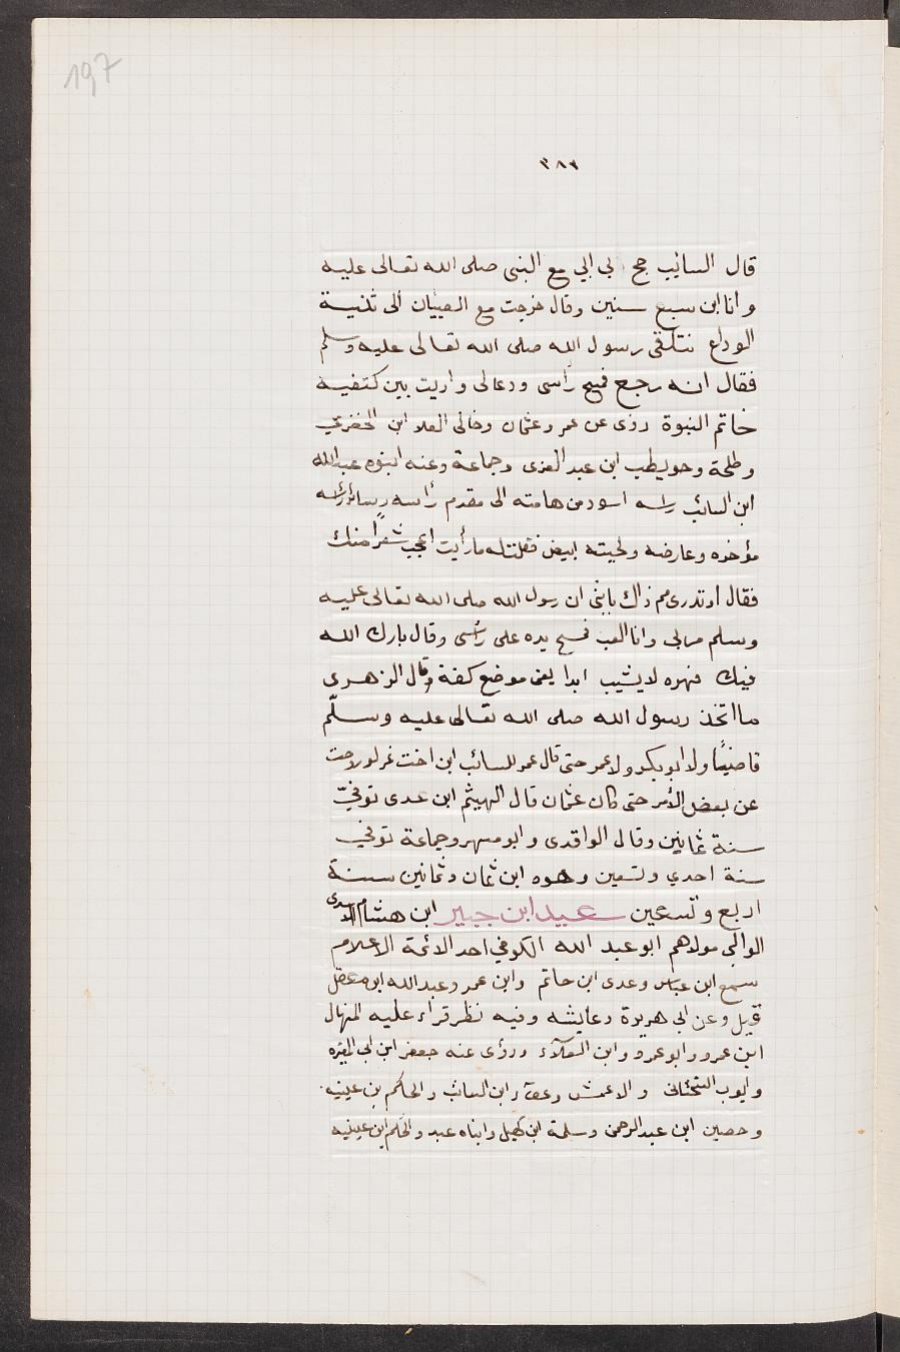 197
٣٨٣
قال السائب حج بي ابي مع النبي صلى الله تعالى عليه
وانا ابن سبع سنين وقال خرجت مع الصبيان الى ثنية
الوداع نتلقى رسول الله صلى الله تعالى عليه وسلم
فقال انه رجع فمسح رأسى ودعالى واريت بين كتفيه
خاتم النبوة روى عن عمر وعثمان وخالى العلا ابن الحضرمي
وطلحة وحويطب ابن عبد العزى وجماعة وعنه ابنوه عبدالله
ابن السائب راسه اسود من هامته الى مقدم رأسه وسائر رأسه
مؤخره وعارضه ولحيته ابيض فقلت له ما رأيت اعجب شعرا منك
فقال او تدرى مم ذاك يابني ان رسول الله صلى الله تعالى عليه
وسلم مر بى وانا العب فمسح يده على رأسى وقال بارك الله
فيك فهره لا يشيب ابدا يعنى موضع كفة وقال الزهرى
ما اتخذ رسول الله صلى الله تعالى عليه وسلّم
قاضيًا ولا ابوبكر ولا عمر حتى قال عمر للسائب ابن اخت نمر لو روحت
عن بعض الأمر حتى كان عثمان قال الهيثم ابن عدى توفيّ
سنة ثمانين وقال الواقدى وابو مسهر وجماعة توفي
سنة احدي وتسعين وهوه ابن ثمان وثمانين سنة
اربع وتسعين سعيد ابن جبير ابن هشام الاسدى
الوالبى مولاهم ابو عبد الله الكوفي احد الائمة الاعلام
سمع ابن عباس وعدى ابن حاتم وابن عمر وعبدالله ابن معقل
قيل وعن ابي هريرة وعايشه وفيه نظر قراء عليه المنهال
ابن عمرو وابو عمرو وابن العلآء وروى عنه جعفر ابن ابى المغيره
وايوب السختيانى والاعمش وعطآء ابن السائب والحاكم بن عيينه
وحصين ابن عبدالرحمن وسلمة ابن كهيل وابناه عبد والحكم ابن عيينه